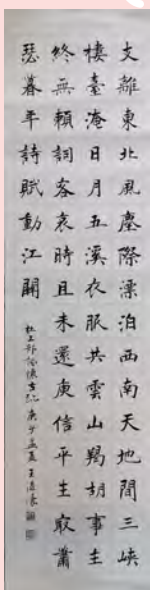 支離東北風塵際漂泊西南天地間三峽
樓臺淹日月五溪衣服共雲山羯胡事主
終無賴詞客哀時且未還庾信平生最蕭
瑟暮年詩賦動江關
杜工部詠懷古跡庚子孟夏王